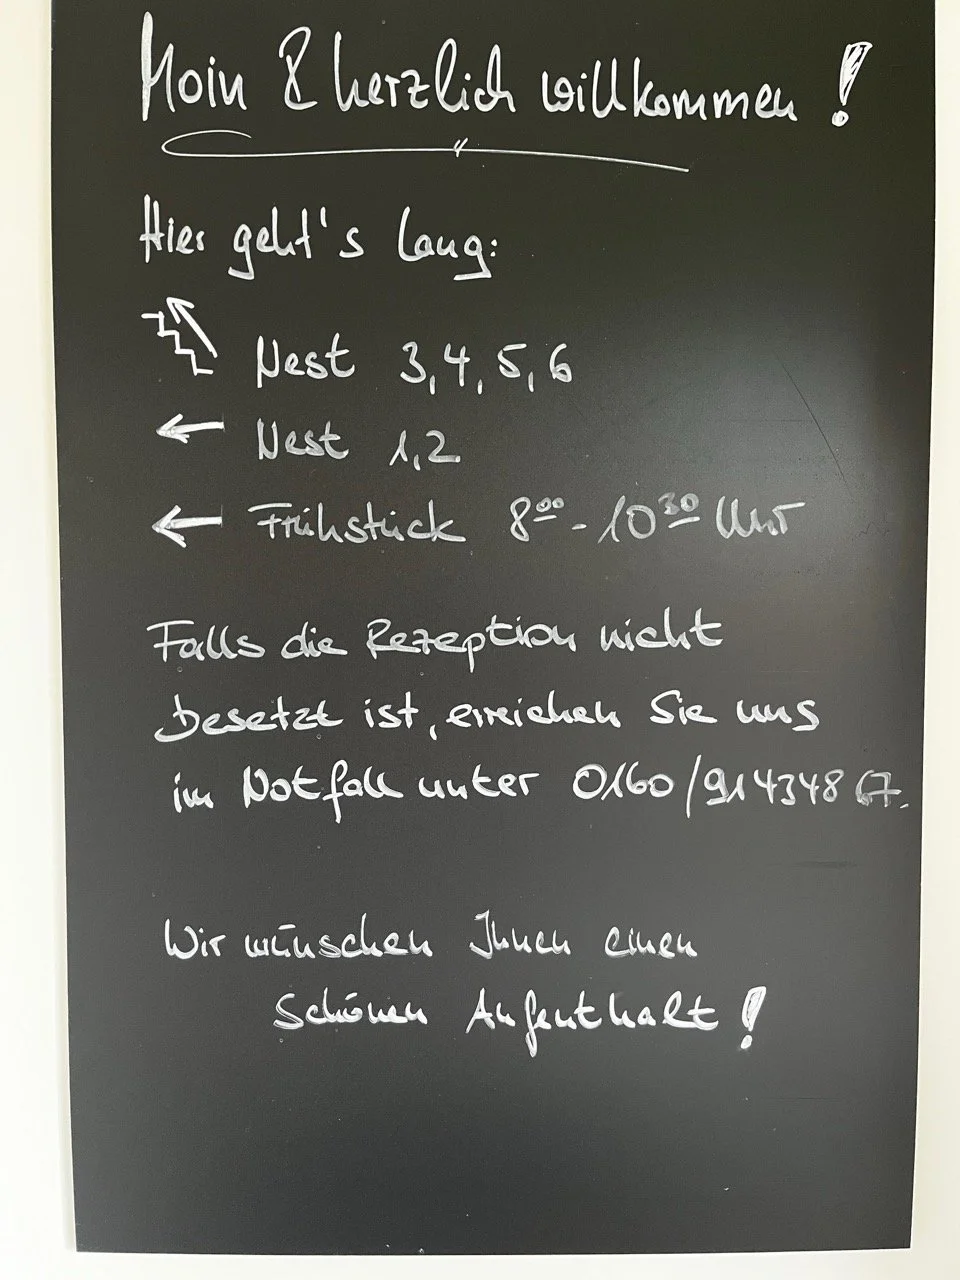 Moin & herzlich willkommen!
Hier geht's lang:
Nest 3, 4, 5, 6
← Nest 1, 2
← Frühstück 8⁰⁰ - 10³⁰ Uhr
Falls die Rezeption nicht
besetzt ist, erreichen Sie uns
im Notfall unter 0160/91434867.
Wir wünschen Ihnen einen
schönen Aufenthalt!